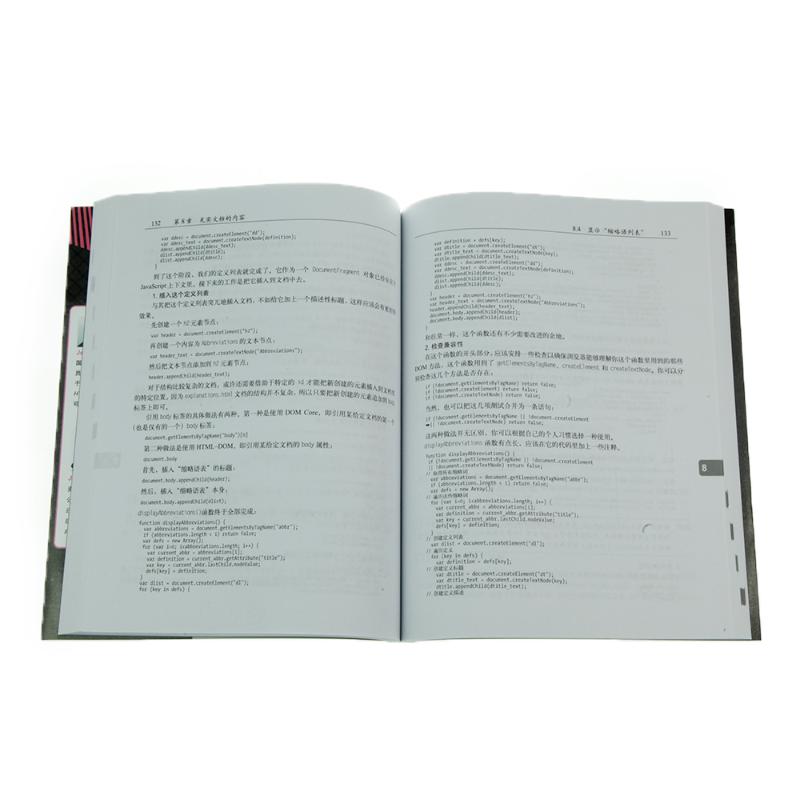 132 第 8 章 充实文档的内容
var ddesc = document.createElement("dd");
var ddesc_text = document.createTextNode(definition);
ddesc.appendChild(ddesc_text);
dlist.appendChild(dtitle);
dlist.appendChild(ddesc);
}
到了这个阶段，我们的定义列表就完成了，它作为一个 DocumentFragment 对象已经存在于
JavaScript上下文里。接下来的工作是把它插入到文档中去。
1. 插入这个定义列表
与其把这个定义列表突兀地插入文档，不如给它加上一个描述性标题，这样应该会有更好的
效果。
先创建一个 h2 元素节点：
var header = document.createElement("h2");
再创建一个内容为 Abbreviations 的文本节点：
var header_text = document.createTextNode("Abbreviations");
然后把文本节点添加到 h2 元素节点：
header.appendChild(header_text);
对于结构比较复杂的文档，或许还需要借助于特定的 id 才能把新创建的元素插入到文档里
的特定位置。因为 explanations.html 文档的结构并不复杂，所以只要把新创建的元素追加到 body
标签上即可。
引用 body 标签的具体做法有两种。第一种是使用 DOM Core，即引用某给定文档的第一个
(也是仅有的一个) body 标签：
document.getElementsByTagName("body")[0]
第二种做法是使用 HTML-DOM，即引用某给定文档的 body 属性：
document.body
首先，插入“缩略语表”的标题：
document.body.appendChild(header);
然后，插入“缩略语表”本身：
document.body.appendChild(dlist);
displayAbbreviations()函数终于全部完成：
function displayAbbreviations() {
var abbreviations = document.getElementsByTagName("abbr");
if (abbreviations.length < 1) return false;
var defs = new Array();
for (var i=0; i<abbreviations.length; i++) {
var current_abbr = abbreviations[i];
var definition = current_abbr.getAttribute("title");
var key = current_abbr.lastChild.nodeValue;
defs[key] = definition;
}
var dlist = document.createElement("dl");
for (key in defs) {
8.4 显示“缩略语列表” 133
var definition = defs[key];
var dtitle = document.createElement("dt");
var dtitle_text = document.createTextNode(key);
dtitle.appendChild(dtitle_text);
var ddesc = document.createElement("dd");
var ddesc_text = document.createTextNode(definition);
ddesc.appendChild(ddesc_text);
dlist.appendChild(dtitle);
dlist.appendChild(ddesc);
}
var header = document.createElement("h2");
var header_text = document.createTextNode("Abbreviations");
header.appendChild(header_text);
document.body.appendChild(header);
document.body.appendChild(dlist);
}
和往常一样，这个函数还有不少需要改进的余地。
2. 检查兼容性
在这个函数的开头部分，应该安排一些检查以确保浏览器能够理解你这个函数里用到的那些
DOM 方法。这个函数用到了 getElementsByTagName、createElement 和 createTextNode。你可以分
别检查这几个方法是否存在：
if (!document.getElementsByTagName) return false;
if (!document.createElement) return false;
if (!document.createTextNode) return false;
当然，也可以把这几项测试合并为一条语句：
if (!document.getElementsByTagName || !document.createElement
|| !document.createTextNode) return false;
这两种做法并无区别，你可以根据自己的个人习惯选择一种使用。
displayAbbreviations 函数有点长，应该在它的代码里加上一些注释。
function displayAbbreviations() {
if (!document.getElementsByTagName || !document.createElement
|| !document.createTextNode) return false;
// 取得所有缩略词
var abbreviations = document.getElementsByTagName("abbr");
if (abbreviations.length < 1) return false;
var defs = new Array();
// 遍历这些缩略词
for (var i=0; i<abbreviations.length; i++) {
var current_abbr = abbreviations[i];
var definition = current_abbr.getAttribute("title");
var key = current_abbr.lastChild.nodeValue;
defs[key] = definition;
}
// 创建定义列表
var dlist = document.createElement("dl");
// 遍历定义
for (key in defs) {
var definition = defs[key];
// 创建定义标题
var dtitle = document.createElement("dt");
var dtitle_text = document.createTextNode(key);
dtitle.appendChild(dtitle_text);
// 创建定义描述
8